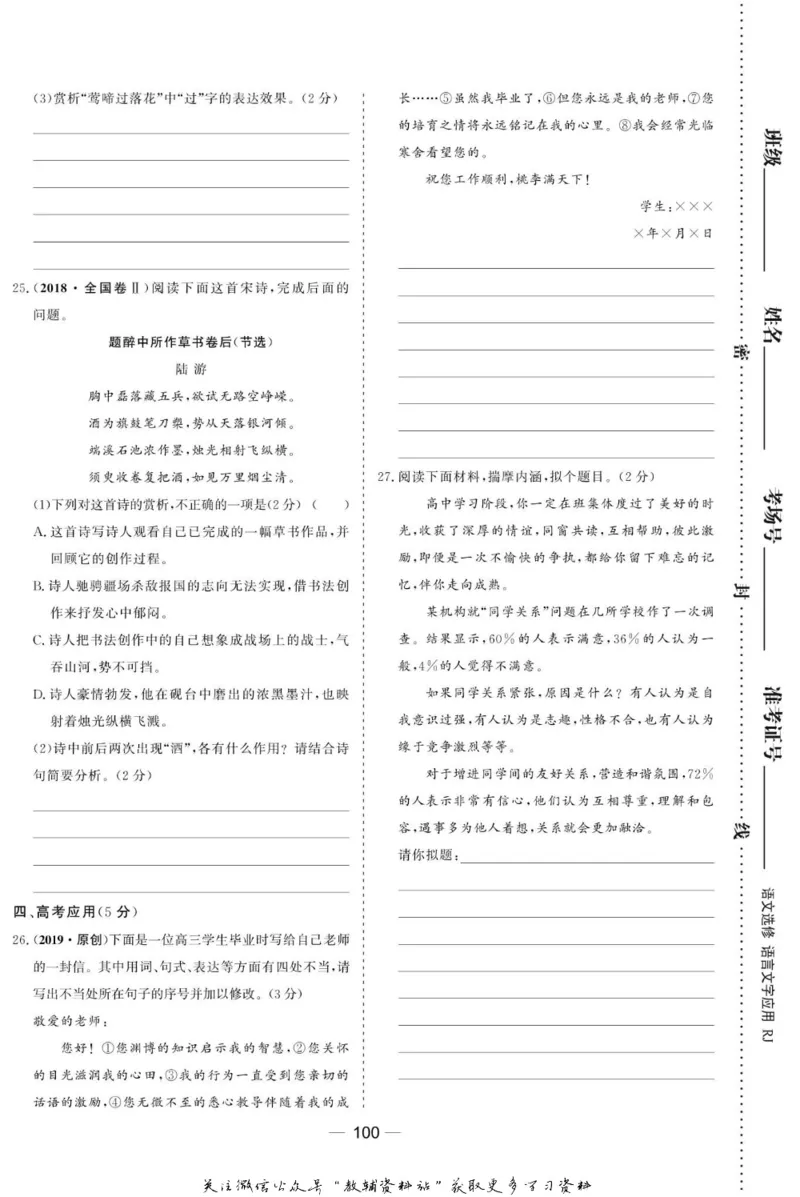 (3)赏析“莺啼过落花”中“过”字的表达效果。(2分)
25.(2018·全国卷Ⅱ)阅读下面这首宋诗,完成后面的
问题。
题醉中所作草书卷后(节选)
陆 游
胸中磊落藏五兵,欲试无路空峥嵘。
酒为旗鼓笔刀槊,势从天落银河倾。
端溪石池浓作墨,烛光相射飞纵横。
须臾收卷复把酒,如见万里烟尘清。
(1)下列对这首诗的赏析,不正确的一项是(2分) (  )
A.这首诗写诗人观看自己已完成的一幅草书作品,并
回顾它的创作过程。
B.诗人驰骋疆场杀敌报国的志向无法实现,借书法创
作来抒发心中郁闷。
C.诗人把书法创作中的自己想象成战场上的战士,气
吞山河,势不可挡。
D.诗人豪情勃发,他在砚台中磨出的浓黑墨汁,也映
射着烛光纵横飞溅。
(2)诗中前后两次出现“酒”,各有什么作用? 请结合诗
句简要分析。(2分)
四、高考应用(5分)
26.(2019·原创)下面是一位高三学生毕业时写给自己老师
的一封信。其中用词、句式、表达等方面有四处不当,请
写出不当处所在句子的序号并加以修改。(3分)
敬爱的老师:
您好! ①您渊博的知识启示我的智慧,②您关怀
的目光滋润我的心田,③我的行为一直受到您亲切的
话语的激励,④您无微不至的悉心教导伴随着我的成
长……⑤虽然我毕业了,⑥但您永远是我的老师,⑦您
的培育之情将永远铭记在我的心里。⑧我会经常光临
寒舍看望您的。
祝您工作顺利,桃李满天下!
学生:×××
×年×月×日
27.阅读下面材料,揣摩内涵,拟个题目。(2分)
高中学习阶段,你一定在班集体度过了美好的时
光,收获了深厚的情谊,同窗共读,互相帮助,彼此激
励,即便是一次不愉快的争执,都给你留下难忘的记
忆,伴你走向成熟。
某机构就“同学关系”问题在几所学校作了一次调
查。结果显示,60%的人表示满意,36%的人认为一
般,4%的人觉得不满意。
如果同学关系紧张,原因是什么? 有人认为是自
我意识过强,有人认为是志趣,性格不合,也有人认为
缘于竞争激烈等等。
对于增进同学间的友好关系,营造和谐氛围,72%
的人表示非常有信心,他们认为互相尊重,理解和包
容,遇事多为他人着想,关系就会更加融洽。
请你拟题:
密
封
线
班级
姓名
考场号
准考证号
语文选修 语言文字应用 RJ
— 100 —
关注微信公众号“教辅资料站”获取更多学习资料